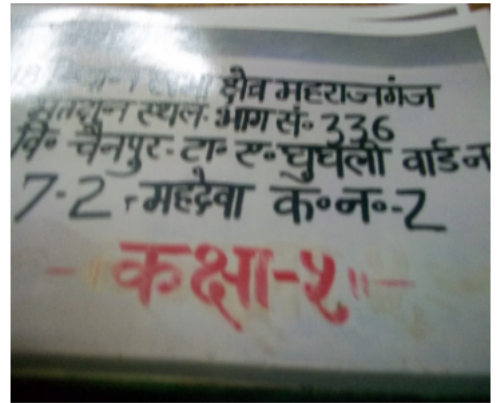 क्षेत्र महराजगंज
मतदान स्थल भाग सं॰ 336
वि॰ चैनपुर टा॰ ए॰ घुघली वार्ड न
7-2, महदेवा क॰ न॰-2
- कक्षा-५॥ -